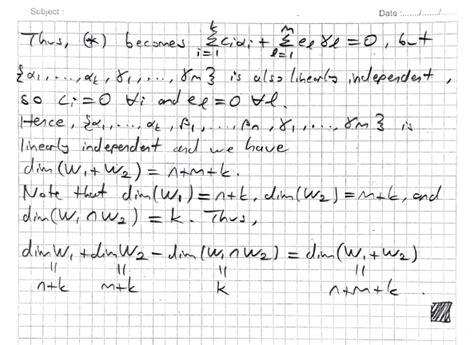 Subject : Date :....../....../......
Thus, (*) becomes \sum_{i=1}^{k} c_i α_i + \sum_{l=1}^{m} e_l γ_l = 0, but
{α_1, ..., α_k, γ_1, ..., γ_m} is also linearly independent,
so c_i = 0 ∀i and e_l = 0 ∀l.
Hence, {α_1, ..., α_k, β_1, ..., β_n, γ_1, ..., γ_m} is
linearly independent and we have
dim(W_1 + W_2) = n+m+k.
Note that dim(W_1) = n+k, dim(W_2) = m+k, and
dim(W_1 ∩ W_2) = k. Thus,
dim W_1 + dim W_2 - dim(W_1 ∩ W_2) = dim(W_1 + W_2)
= = = =
n+k m+k k n+m+k